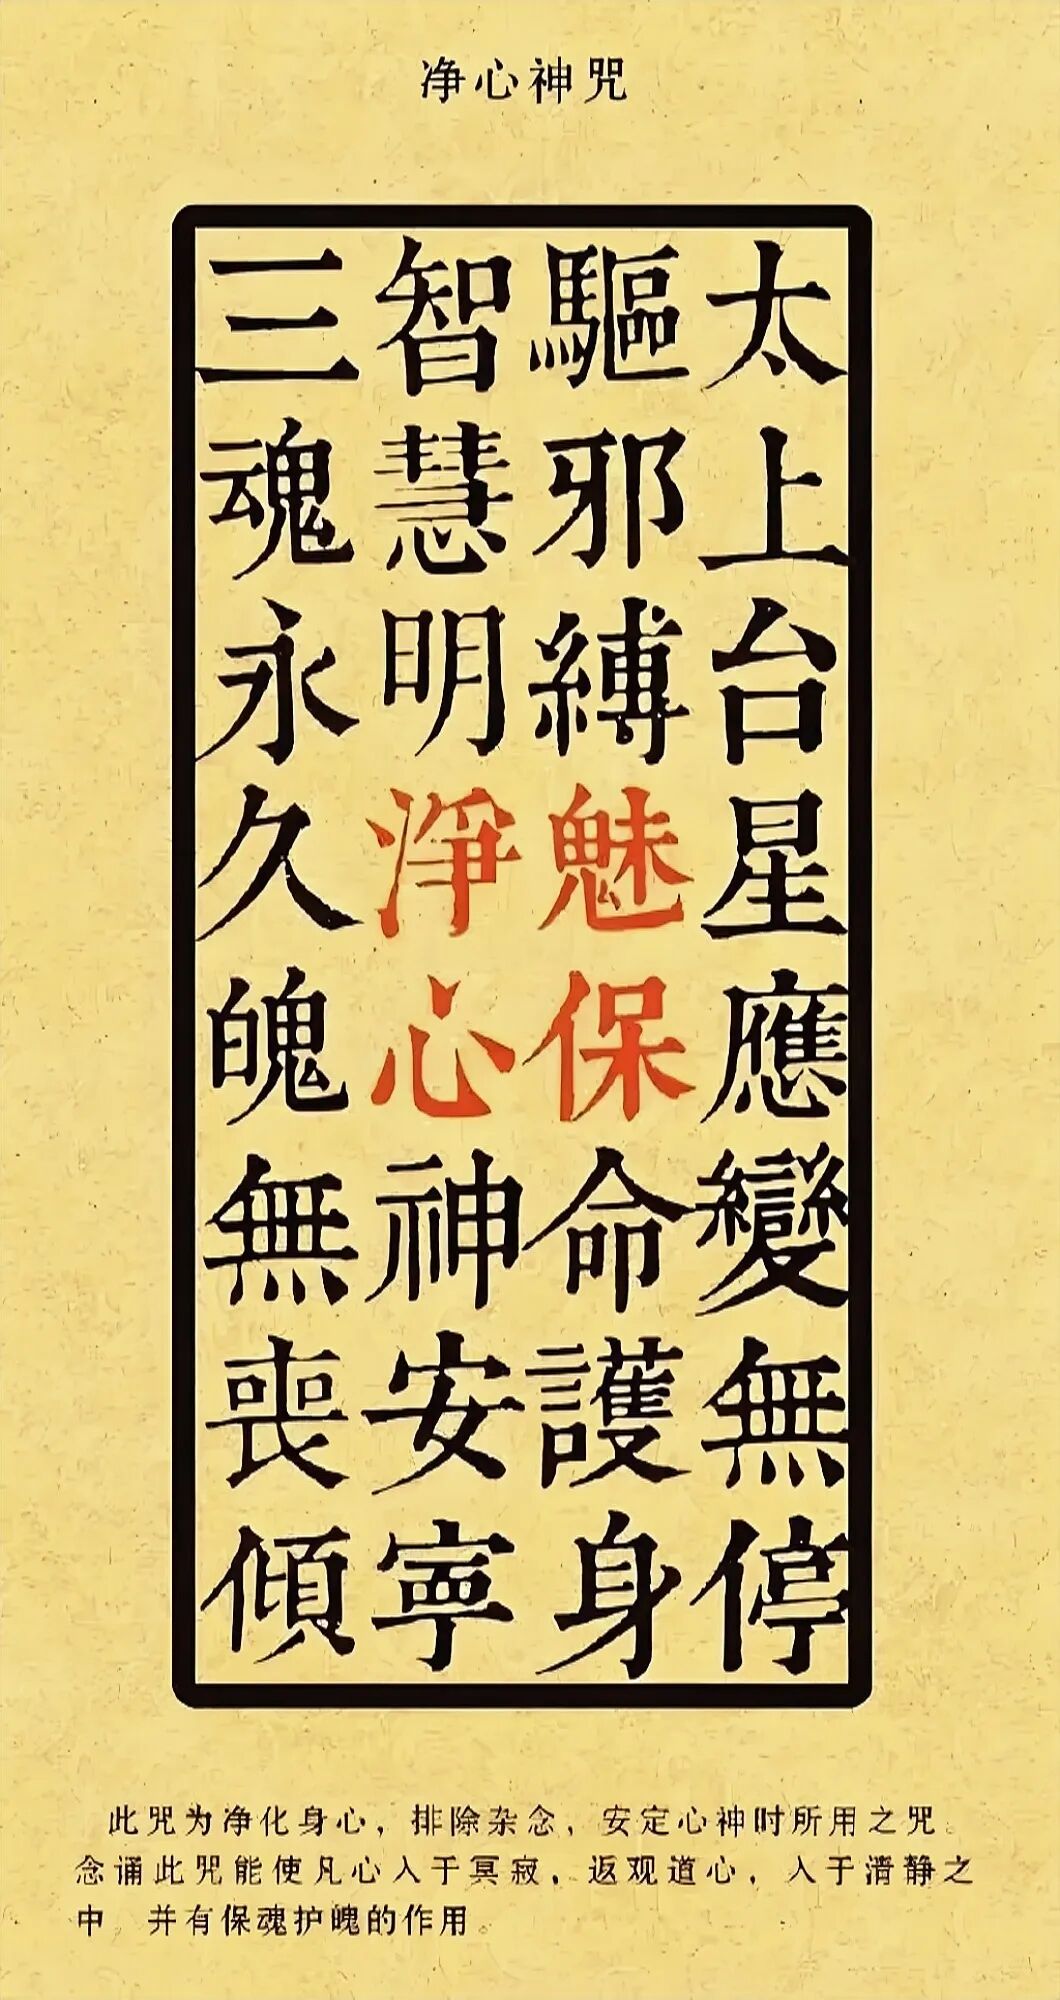 净心神咒
太上台星應變無停
驅邪縛魅保命護身
智慧明淨心神安寧
三魂永久魄無喪傾
此咒为净化身心，排除杂念，安定心神时所用之咒。
念诵此咒能使凡心入于冥寂，返观道心，入于清静之
中 并有保魂护魄的作用。